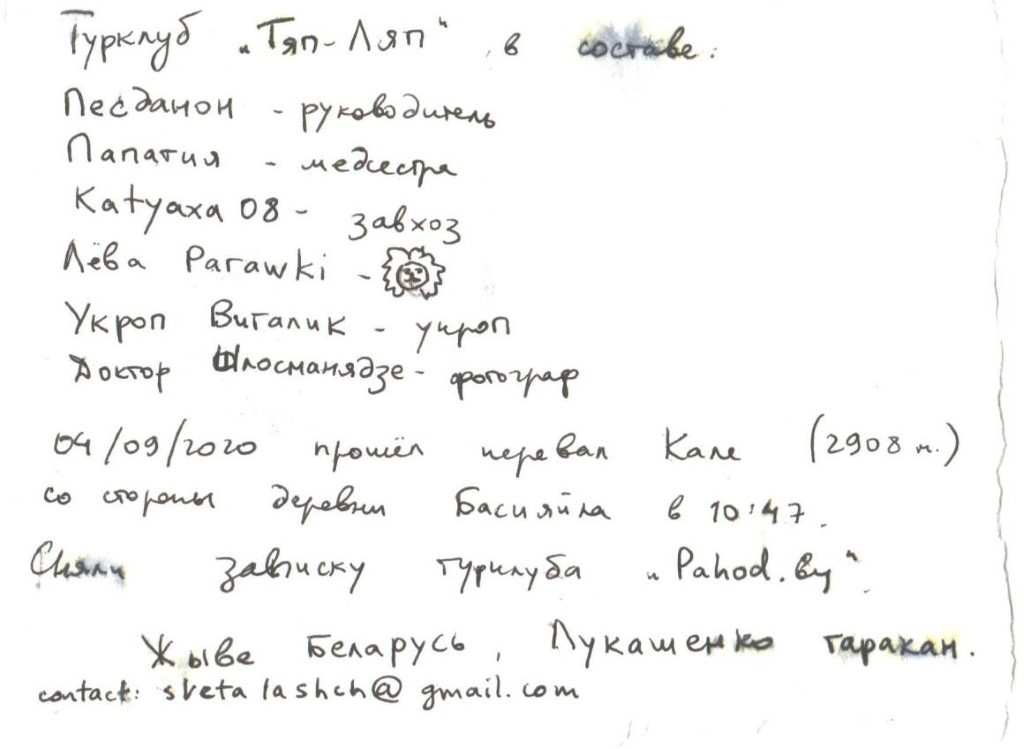 Турклуб „Тяп-Ляп“, в составе:
Песданон - руководитель
Папатия - медсестра
Катуаха 08 - завхоз
Лёва Parawki -
Укроп Виталик - укроп
Доктор Шлосманядзе - фотограф
04/09/2020 прошёл перевал Кале (2908 м.)
со стороны деревни Басияйла в 10:47.
Сняли записку турклуба „Pahod.by“.
Жыве Беларусь, Лукашенко таракан.
contact: svetalashch@gmail.com